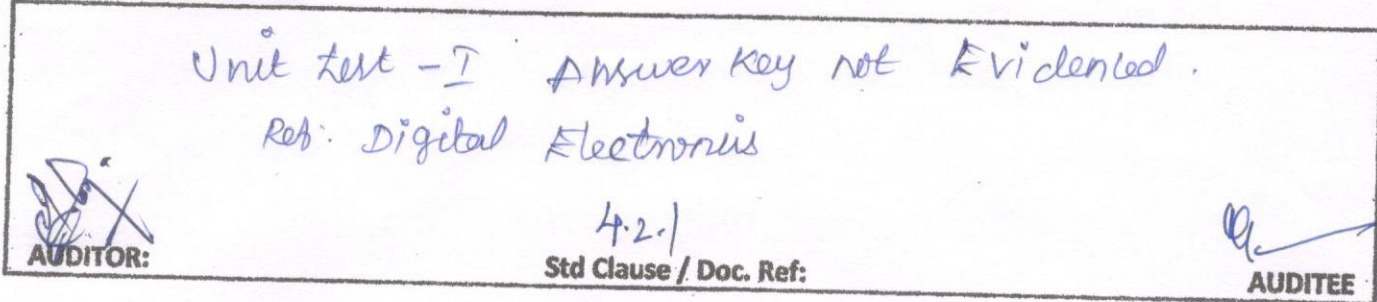 Unit test - I Answer Key not Evidenced.
Ref: Digital Electronics
4.2.1
AUDITOR: Std Clause / Doc. Ref: AUDITEE